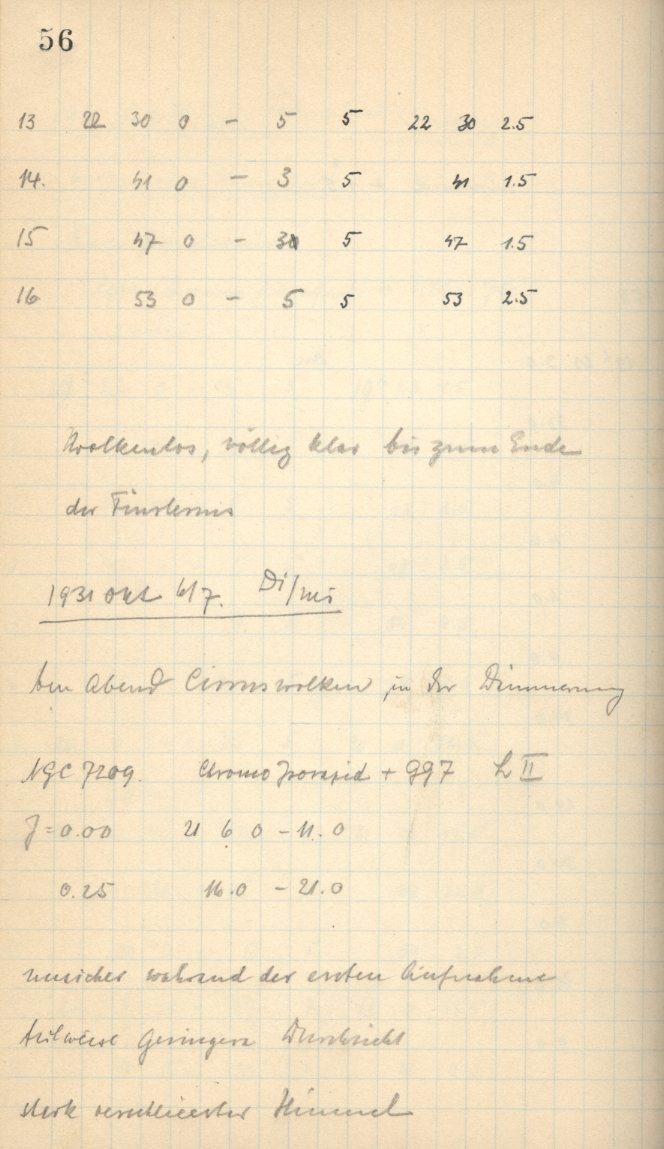 56
13 22 30 0 - 5 5 22 30 2.5
14. 41 0 - 3 5 41 1.5
15 47 0 - 3 5 47 1.5
16 53 0 - 5 5 53 2.5
Wolkenlos, völlig klar bis zum Ende
der Finsternis
1931 Okt 6/7. Di/Mi
Am Abend Cirruswolken in der Dämmerung
NGC 7209. Chromo Isorapid + GG7 L II
J = 0.00 21 6 0 - 11.0
0.25 16.0 - 21.0
unsicher während der ersten Aufnahme
teilweise geringere Durchsicht
stark verschleierter Himmel